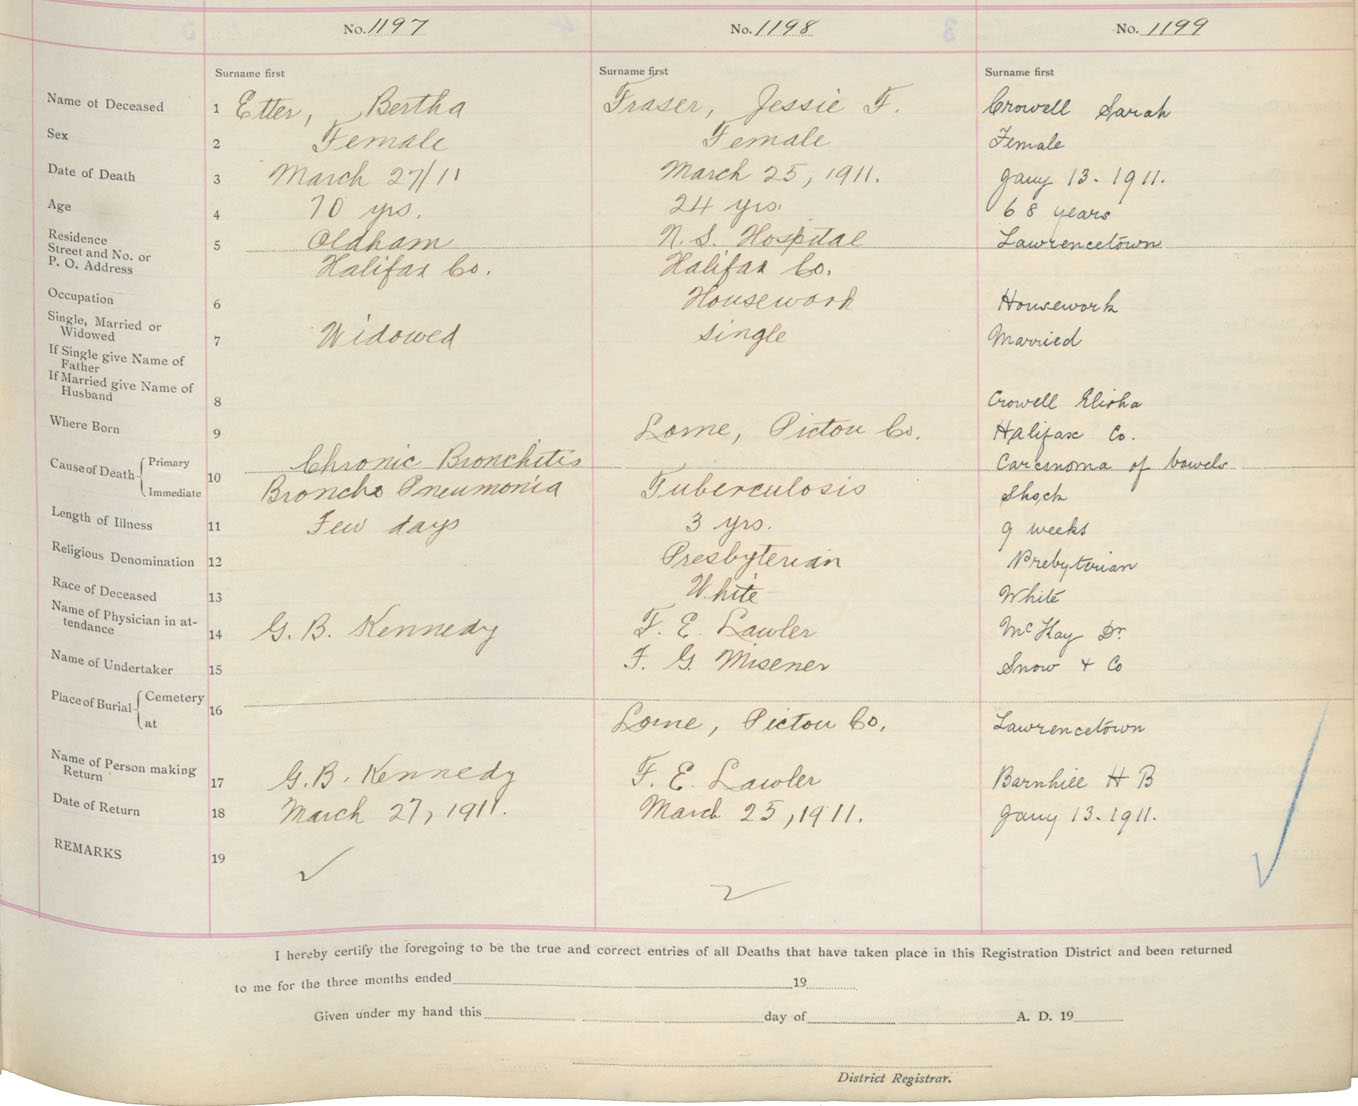 No. 1197 No. 1198 No. 1199
Surname first Surname first Surname first
Name of Deceased 1 Etter, Bertha Fraser, Jessie F. Crowell Sarah
Sex 2 Female Female Female
Date of Death 3 March 27/11 March 25, 1911. Jany 13-1911.
Age 4 70 yrs. 24 yrs. 68 years
Residence
Street and No. or 5 Oldham N. S. Hospital Lawrencetown
P. O. Address Halifax Co. Halifax Co.
Occupation 6 Housework Housework
Single, Married or
Widowed 7 Widowed Single Married
If Single give Name of
Father
If Married give Name of
Husband 8 Crowell Elisha
Where Born 9 Lorne, Pictou Co. Halifax Co.
Cause of Death Primary Chronic Bronchitis Carcinoma of bowels
10
Immediate Broncho Pneumonia Tuberculosis Shock
Length of Illness 11 Few days 3 yrs. 9 weeks
Religious Denomination 12 Presbyterian Prebyterian
Race of Deceased 13 White White
Name of Physician in at-
tendance 14 G. B. Kennedy F. E. Lawler McKay Dr
Name of Undertaker 15 F. G. Misener Snow + Co
Place of Burial Cemetery
16
at Lorne, Pictou Co. Lawrencetown
Name of Person making
Return 17 G. B. Kennedy F. E. Lawler Barnhill H B
Date of Return 18 March 27, 1911. March 25, 1911. Jany 13-1911.
REMARKS 19
I hereby certify the foregoing to be the true and correct entries of all Deaths that have taken place in this Registration District and been returned
to me for the three months ended 19
Given under my hand this day of A. D. 19
District Registrar.